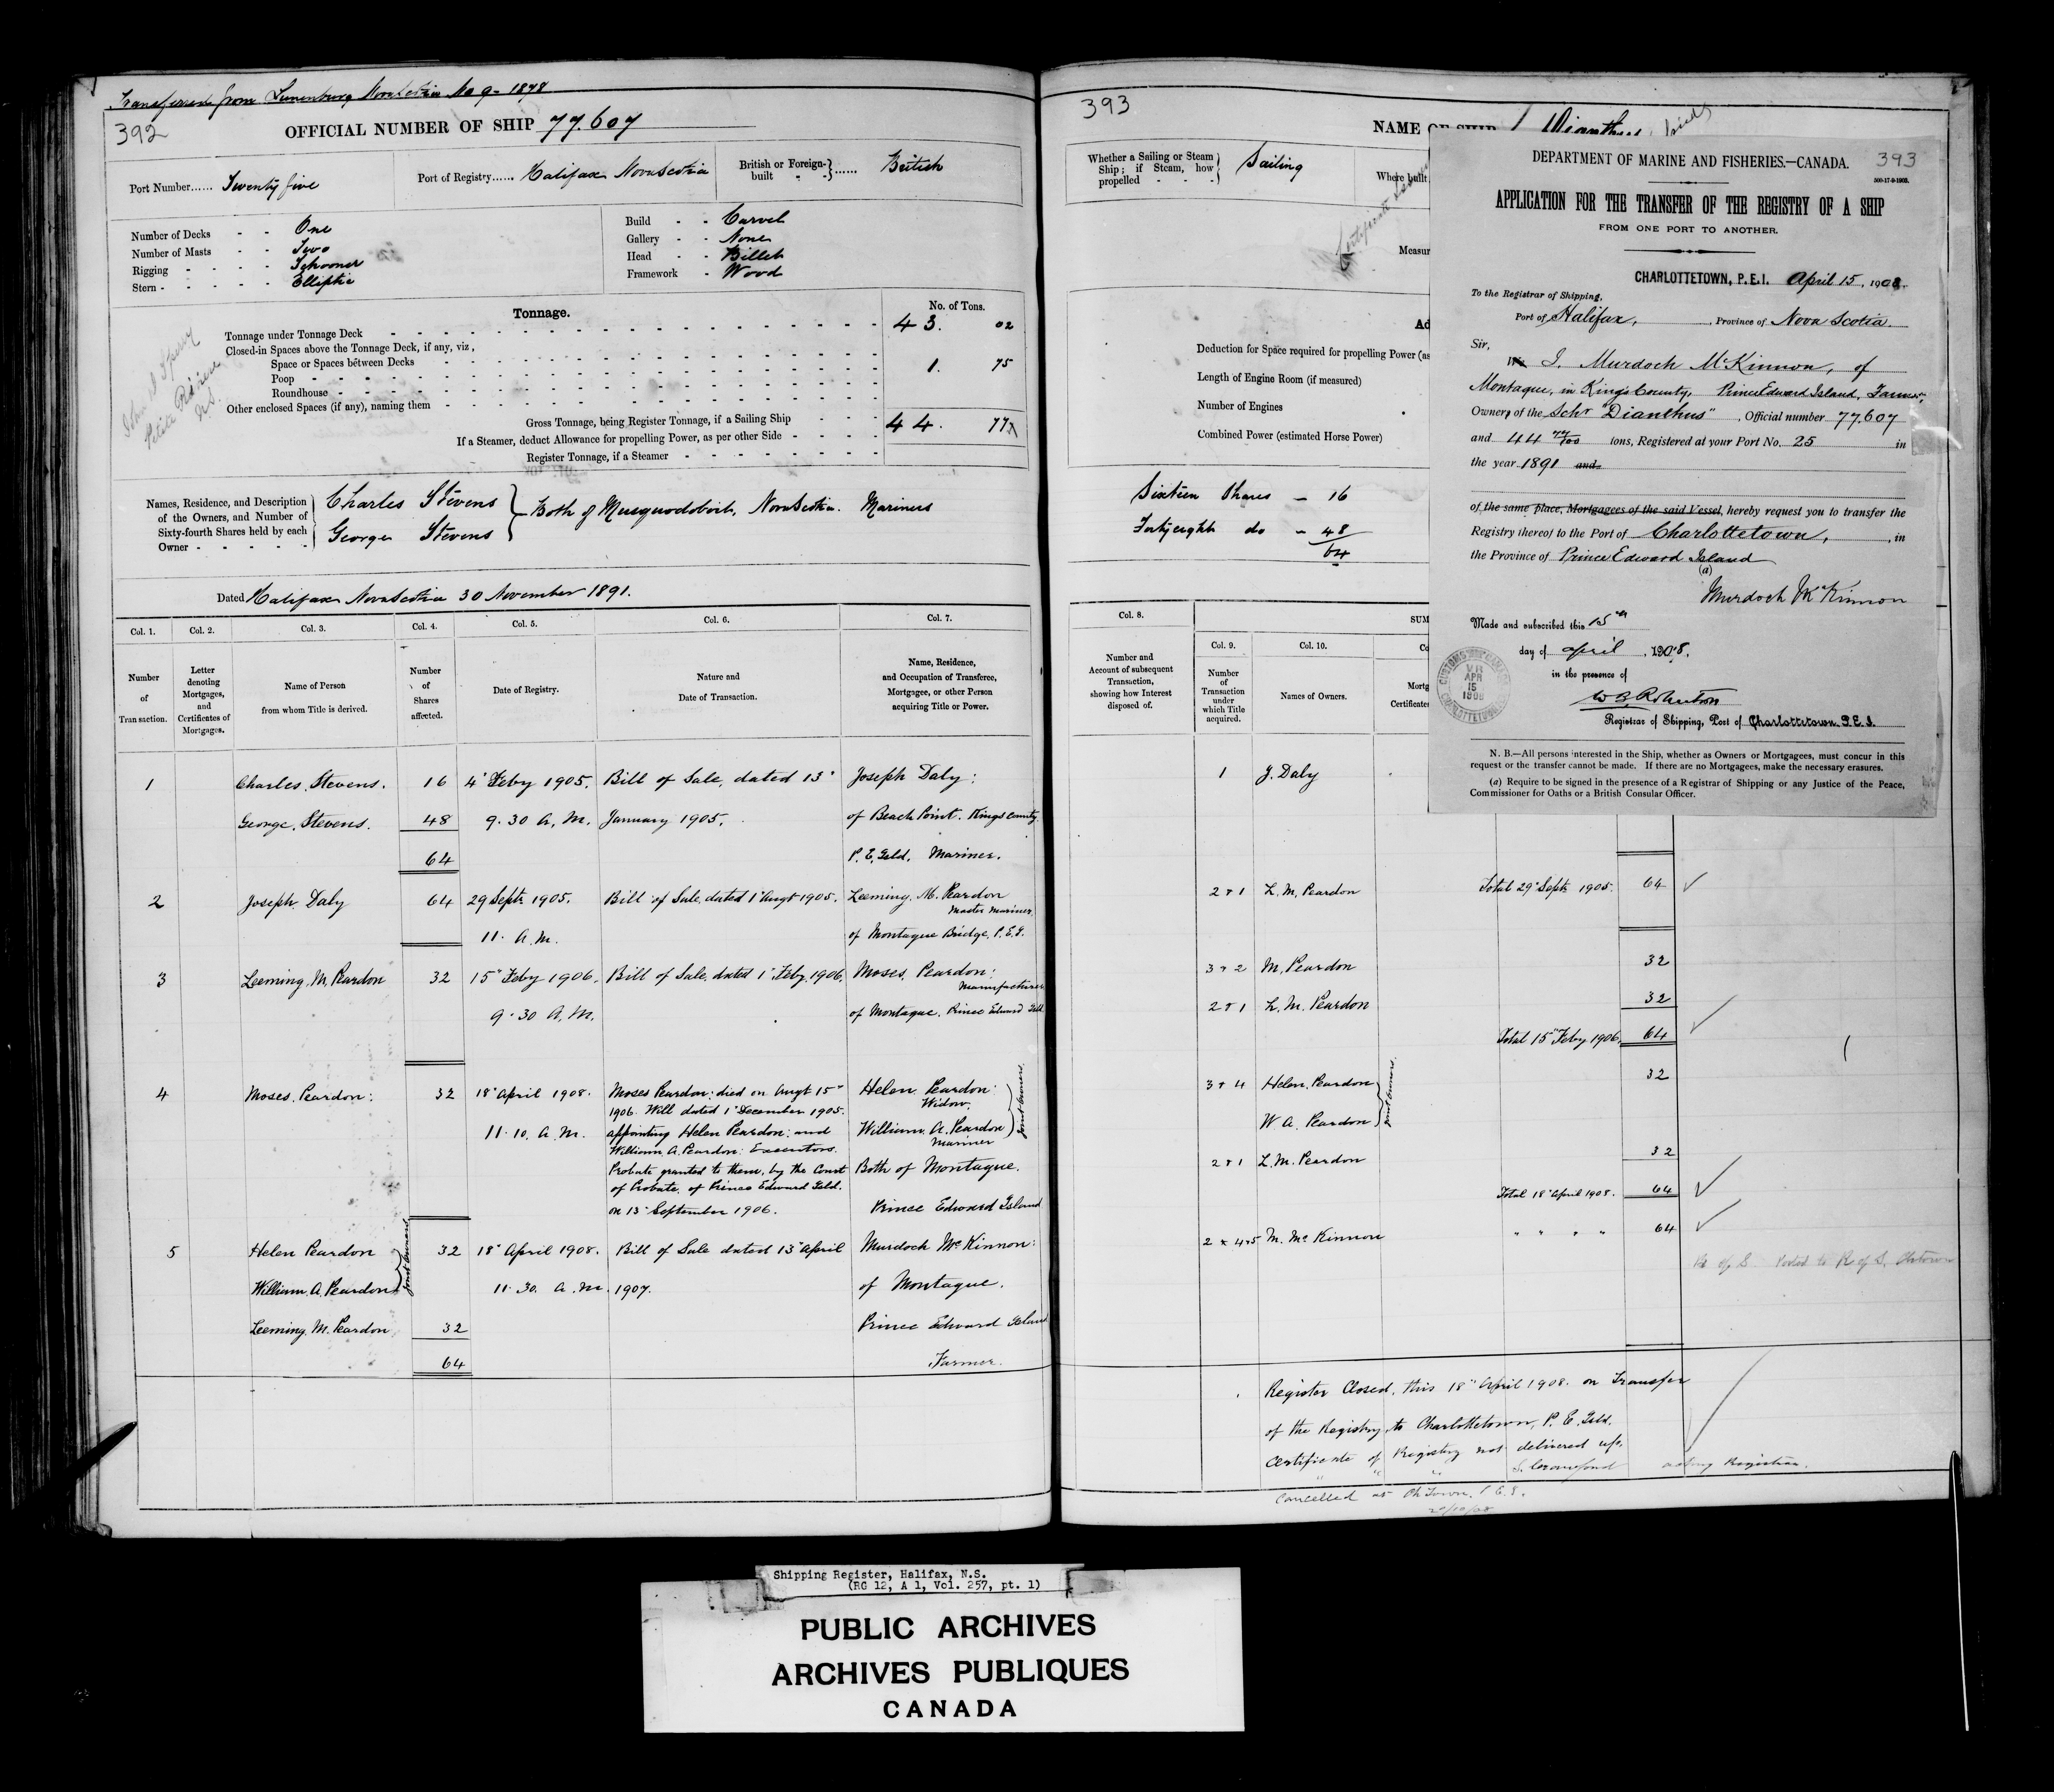 Transferred from Lunenburg Nova Scotia No 9 - 1878
392
OFFICIAL NUMBER OF SHIP 77.607
Port Number...... Twenty five
Port of Registry...... Halifax Nova Scotia
British or Foreign-built - - } ...... British
Number of Decks - - One
Number of Masts - - Two
Rigging - - - - Schooner
Stern - - - - - Elliptic
Build - - Carvel
Gallery - - None
Head - - Billet
Framework - Wood
Tonnage.
No. of Tons.
Tonnage under Tonnage Deck 43. 02
Closed-in Spaces above the Tonnage Deck, if any, viz,
Space or Spaces between Decks 1. 75
Poop
Roundhouse
Other enclosed Spaces (if any), naming them
Gross Tonnage, being Register Tonnage, if a Sailing Ship 44. 77
If a Steamer, deduct Allowance for propelling Power, as per other Side
Register Tonnage, if a Steamer
Names, Residence, and Description
of the Owners, and Number of
Sixty-fourth Shares held by each
Owner - - - - -
Charles Stevens
George Stevens
Both of Musquodoboit, Nova Scotia. Mariners
Dated Halifax Nova Scotia 30 November 1891.
Col. 1. Col. 2. Col. 3. Col. 4. Col. 5. Col. 6. Col. 7.
Number of Transaction.
Letter denoting Mortgages, and Certificates of Mortgages.
Name of Person from whom Title is derived.
Number of Shares affected.
Date of Registry.
Nature and Date of Transaction.
Name, Residence, and Occupation of Transferee, Mortgagee, or other Person acquiring Title or Power.
1 Charles Stevens. 16 4" Feby 1905. Bill of Sale, dated 13" Joseph Daly:
George Stevens. 48 9.30 A.M. January 1905. of Beach Point. Kings County
64 P. E. Isld. Mariner.
2 Joseph Daly 64 29 Septr 1905. Bill of Sale, dated 1" Augt 1905. Leeming M. Peardon
Master Mariner
11. A.M. of Montague Bridge, P.E.I.
3 Leeming M. Peardon 32 15" Feby 1906. Bill of Sale, dated 1" Feby 1906. Moses Peardon:
Manufacturer
9.30 A.M. of Montague. Prince Edward Isld.
4 Moses Peardon: 32 18" April 1908. Moses Peardon: died on Augt 15" Helen Peardon:
1906. Will dated 1" December 1905. Widow.
11.10. A.M. appointing Helen Peardon: and William A. Peardon
William A. Peardon: Executors. Mariner
joint owners.
Probate granted to them, by the Court Both of Montague.
of Probate, of Prince Edward Isld.
on 13" September 1906. Prince Edward Island
5 Helen Peardon 32 18" April 1908. Bill of Sale dated 13" April Murdoch McKinnon:
William A. Peardon 11.30. A.M. 1907. of Montague.
joint owners
Leeming M. Peardon 32 Prince Edward Island
64 Farmer.
393
NAME OF SHIP Dianthus
Whether a Sailing or Steam
Ship; if Steam, how
propelled - - -
Sailing
Where built
Measur
Ad
Deduction for Space required for propelling Power (as
Length of Engine Room (if measured)
Number of Engines
Combined Power (estimated Horse Power)
Sixteen Shares - 16
Forty eight do - 48
64
Col. 8.
SUM
Col. 9. Col. 10. Co
Number and Account of subsequent Transaction, showing how Interest disposed of.
Number of Transaction under which Title acquired.
Names of Owners.
Mortg
Certificates
1 J. Daly
2 & 1 L. M. Peardon Total 29" Septr 1905. 64
3 & 2 M. Peardon 32
2 & 1 L. M. Peardon 32
Total 15" Feby 1906. 64
3 & 4 Helen Peardon 32
W A. Peardon
joint owners.
2 & 1 L. M. Peardon 32
Total 18" April 1908. 64
2 & 4 & 5 M. McKinnon " " " " 64
Register Closed, this 18" April 1908. on Transfer
of the Registry, to Charlottetown, P. E. Isld.
Certificate of Registry not delivered up.
S. Crawford acting Registrar.
Cancelled at Ch Town. P.E.I.
DEPARTMENT OF MARINE AND FISHERIES.—CANADA. 393
500-17-9-1903.
APPLICATION FOR THE TRANSFER OF THE REGISTRY OF A SHIP
FROM ONE PORT TO ANOTHER.
CHARLOTTETOWN, P.E.I. April 15, 1908.
To the Registrar of Shipping,
Port of Halifax, Province of Nova Scotia.
Sir,
We I, Murdoch McKinnon, of
Montague, in King's County, Prince Edward Island, Farmer,
Owner of the Schr "Dianthus", Official number 77,607
and 44 77/100 tons, Registered at your Port No. 25 in
the year 1891 and
of the same place, Mortgagees of the said Vessel, hereby request you to transfer the
Registry thereof to the Port of Charlottetown, in
the Province of Prince Edward Island
(a)
Murdoch McKinnon
Made and subscribed this 15th
day of April, 1908.
in the presence of
Registrar of Shipping, Port of Charlottetown P.E.I.
CUSTOMS CANADA
APR
15
1908
CHARLOTTETOWN
N. B.—All persons interested in the Ship, whether as Owners or Mortgagees, must concur in this
request or the transfer cannot be made. If there are no Mortgagees, make the necessary erasures.
(a) Require to be signed in the presence of a Registrar of Shipping or any Justice of the Peace,
Commissioner for Oaths or a British Consular Officer.
Shipping Register, Halifax, N.S.
(RG 12, A 1, Vol. 257, pt. 1)
PUBLIC ARCHIVES
ARCHIVES PUBLIQUES
CANADA